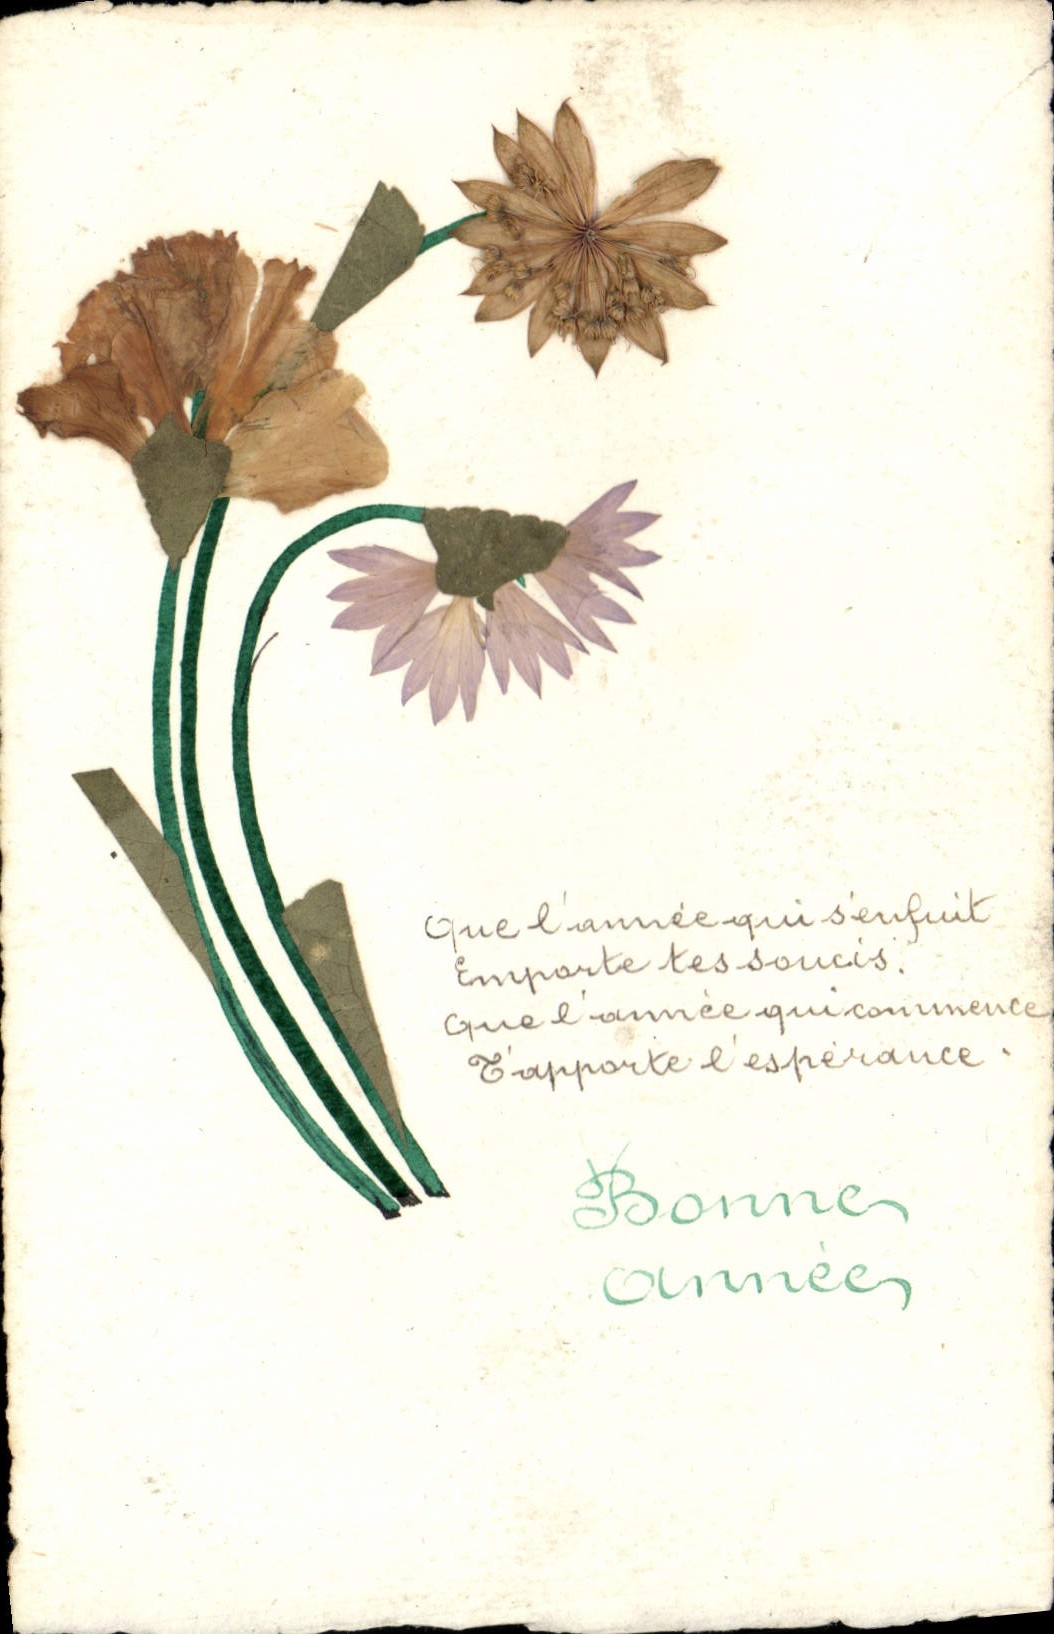 Que l'année qui s'enfuit
Emporte tes soucis.
Que l'année qui commence
T'apporte l'espérance.
Bonne
année